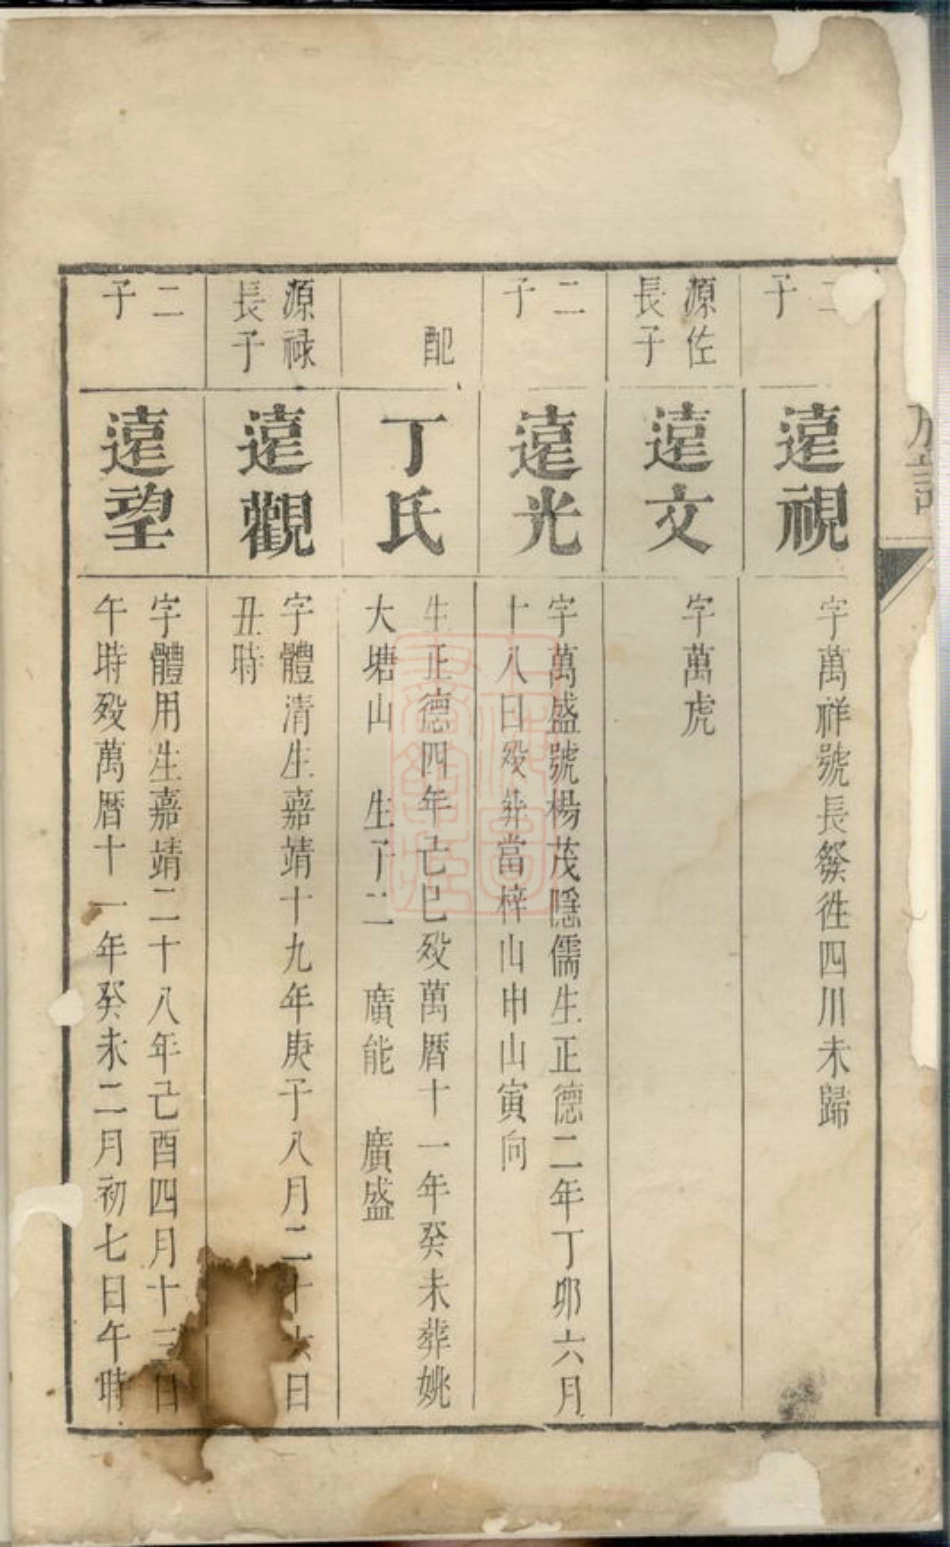 族譜
二
子
遠視
字萬祥號長發徃四川未歸
源佐
長子
遠文
字萬虎
二
子
遠光
字萬盛號楊茂隱儒生正德二年丁卯六月
十八日殁葬當梓山申山寅向
配
丁氏
生正德四年己巳殁萬曆十一年癸未葬姚
大塘山 生子二 廣能 廣盛
源禄
長子
遠觀
字體清生嘉靖十九年庚子八月二十六日
丑時
二
子
遠望
字體用生嘉靖二十八年己酉四月十三日
午時殁萬曆十一年癸未二月初七日午時